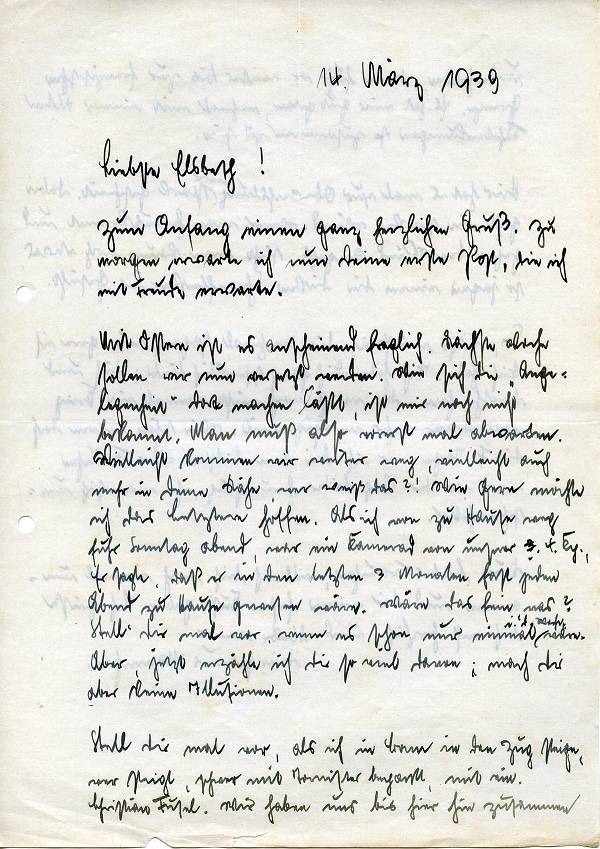 14. März 1939
Liebste Elsbeth!
Zum Anfang einen ganz herzlichen Gruß. Zu
morgen erwarte ich nun Deine erste Post, die ich
mit Freude erwarte.
Mit Ostern ist es anscheinend fraglich. Nächste Woche
sollen wir nun versetzt werden. Wie sich die „Ange-
legenheit" dort machen läßt, ist mir noch nicht
bekannt. Man muß also vorerst mal abwarten.
Vielleicht kommen wir weiter weg, vielleicht auch
mehr in Deine Nähe, wer weiß das?! Wie gern möchte
ich das Letztere hoffen. Als ich von zu Hause weg
fuhr Sonntag abend, war ein Kamerad von unserer 4. Kp.,
Er sagte, daß er in den letzten 3 Monaten fast jeden
Abend zu Hause gewesen wäre. Wäre das fein was?
Stell' Dir mal vor, wenn es schon nur einmal i. d. Woche wäre.
Aber, jetzt erzähle ich Dir so viel davon; mach Dir
aber keine Illusionen.
Stell Dir mal vor, als ich in in den Zug steige,
wer steigt, schwer mit Tornister bepackt, mit ein.
Christian Fusel. Wir haben uns bis hier hin zusammen